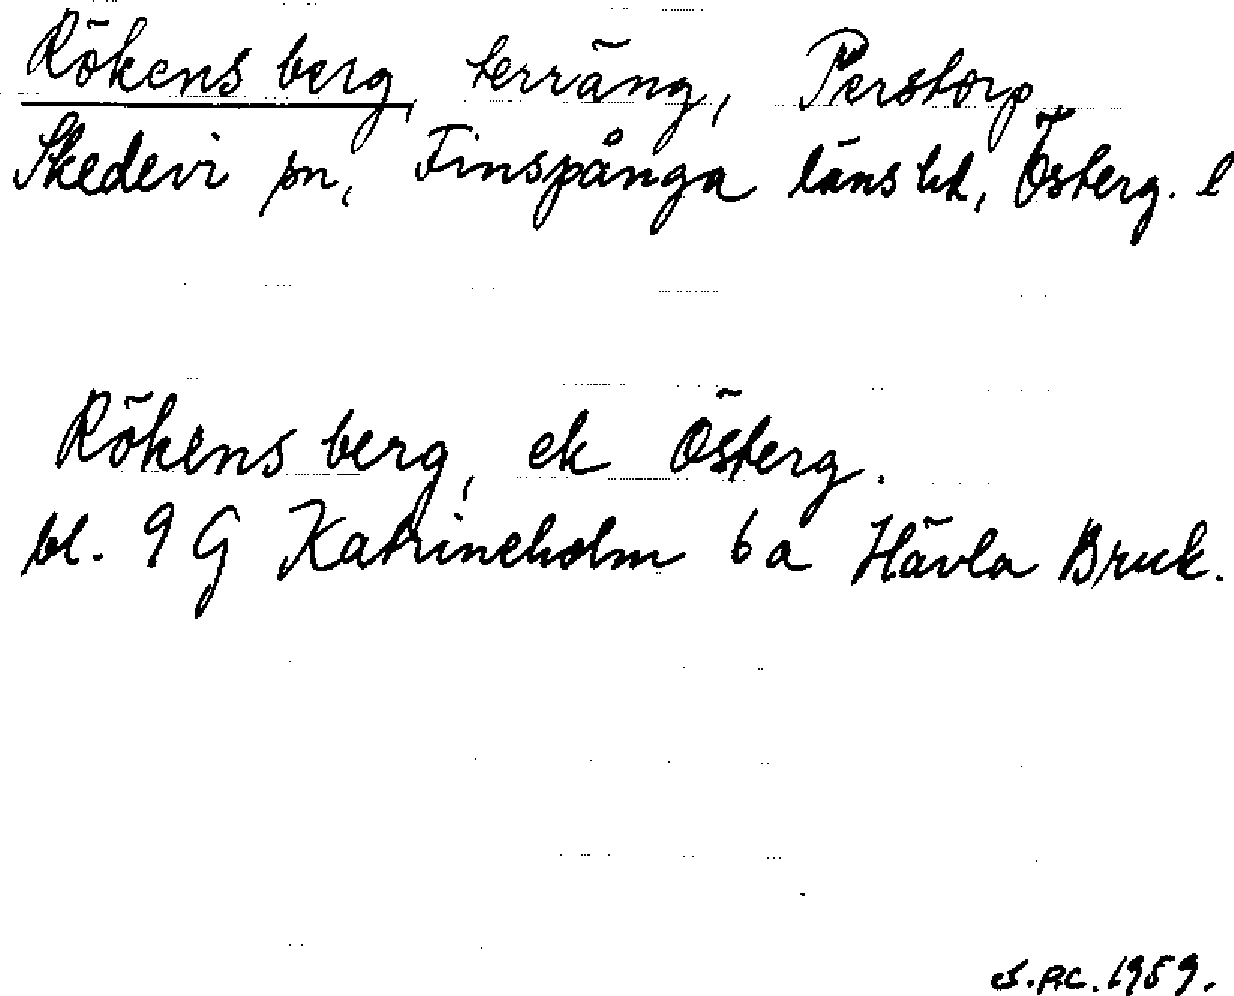 Rökens berg, terräng, Perstorp
Skedevi sn, Finspånga läns hd, Österg. l
Rökens berg, ek Österg.
bl. 9 G Katrineholm 6 a Hävla Bruk.
1959.